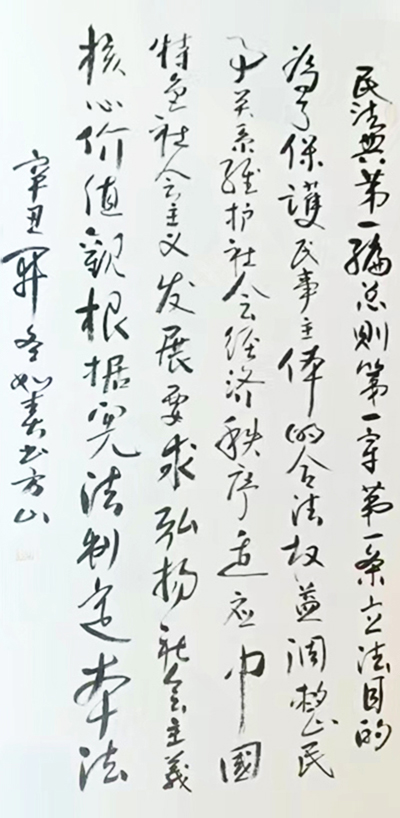 民法典第一編总则第一章第一条立法目的
為了保護民事主体的合法权益调整民
事关系维护社会经济秩序适应中国
特色社会主义发展要求弘扬社会主義
核心价值觀根据宪法制定本法
辛丑冬如书方山